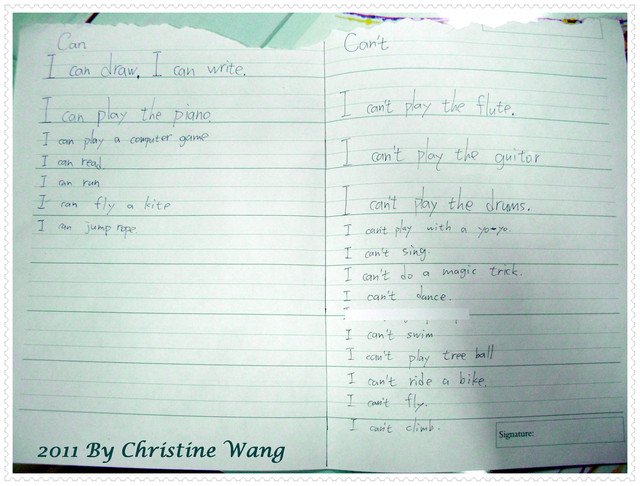 Can
I can draw. I can write.
I can play the piano.
I can play a computer game
I can read.
I can run
I can fly a kite
I can jump rope.
Can't
I can't play the flute.
I can't play the guitor
I can't play the drums.
I can't play with a yo-yo.
I can't sing.
I can't do a magic trick.
I can't dance.
I
I can't swim
I can't play tree ball
I can't ride a bike.
I can't fly.
I can't climb.
Signature:
2011 By Christine Wang